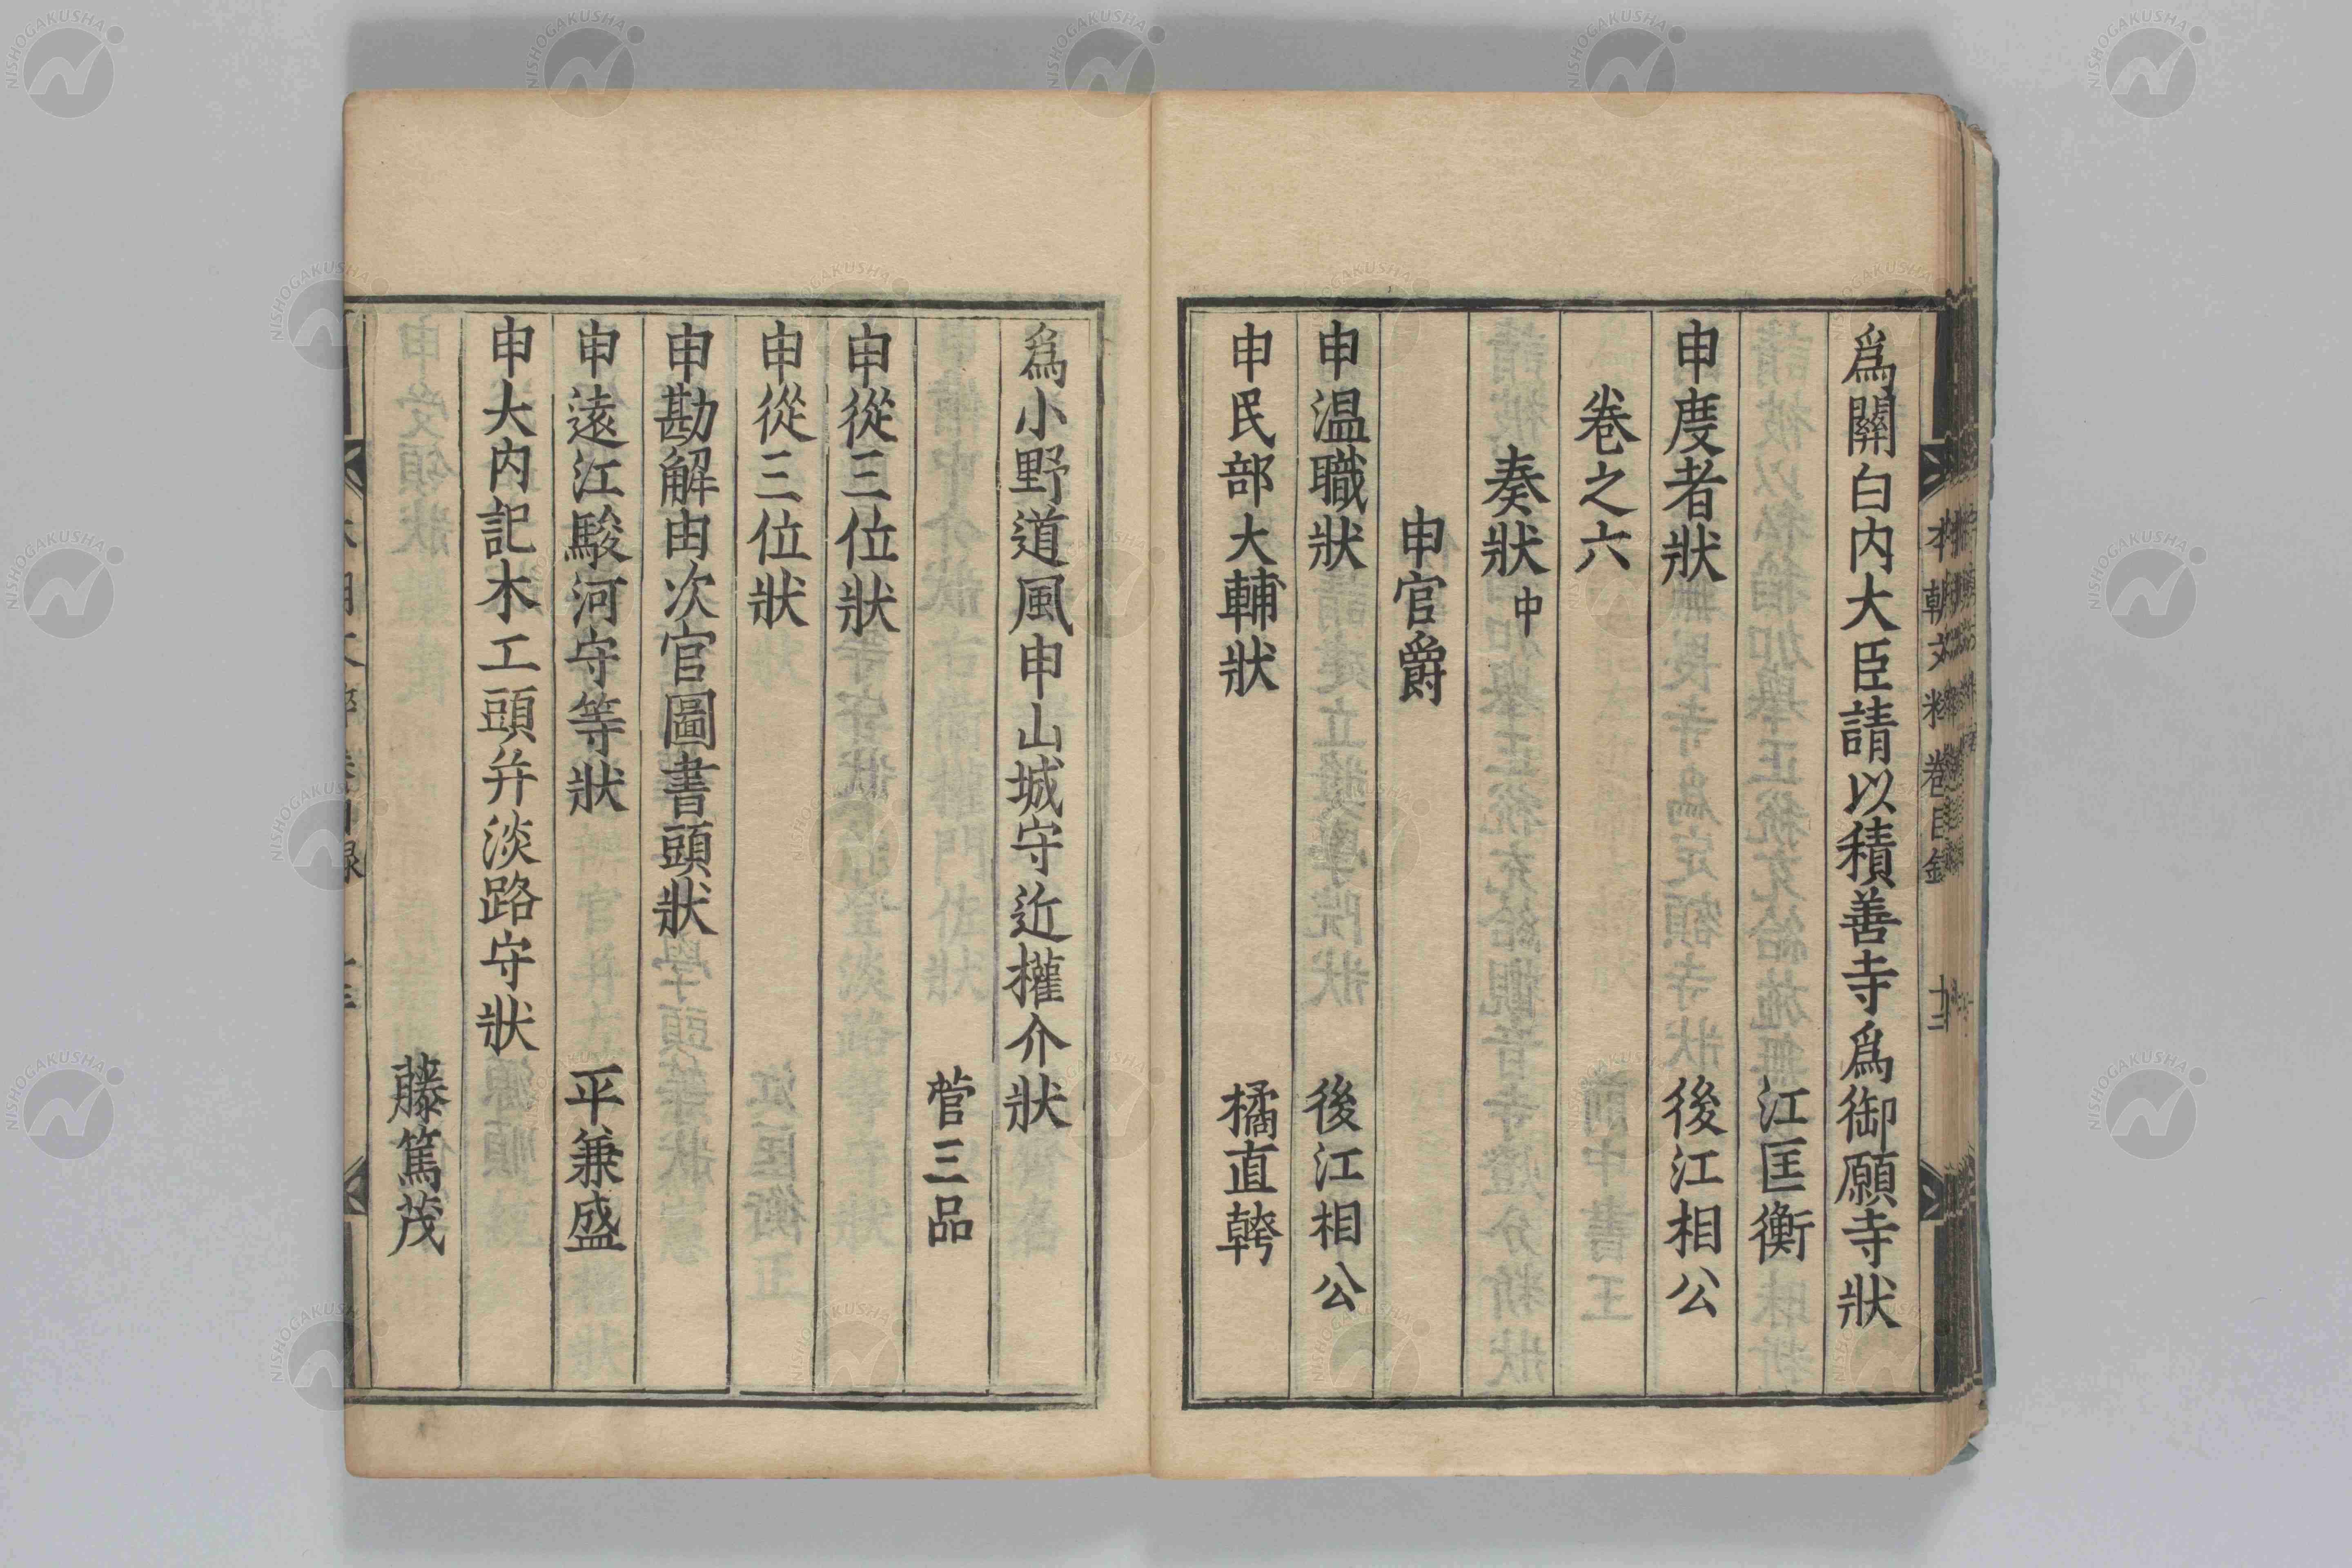 爲關白内大臣請以積善寺爲御願寺狀
江匡衡
申度者狀 後江相公
卷之六
奏狀中
申官爵
申温職狀 後江相公
申民部大輔狀 橘直幹
爲小野道風申山城守近權介狀
菅三品
申從三位狀
申從三位狀
申勘解由次官圖書頭狀
申遠江駿河守等狀 平兼盛
申大内記木工頭并淡路守狀
藤篤茂